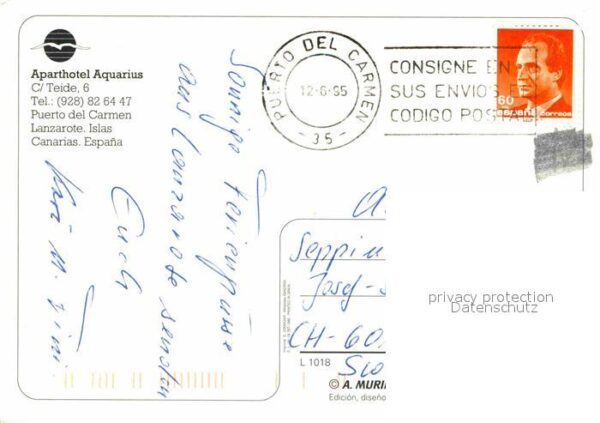 Aparthotel Aquarius
C/ Teide, 6
Tel.: (928) 82 64 47
Puerto del Carmen
Lanzarote. Islas
Canarias. España
PUERTO DEL CARMEN
12-6-95
- 35 -
CONSIGNE EN
SUS ENVIOS E
CODIGO POSTAL
60
ESPAÑA correos
Sonnige Feriengrüsse
aus Lanzarote senden
Euch
A.
Seppi
Josef-S
CH-60
privacy protection
Datenschutz
L 1018
© A. MURI
Edición, diseño